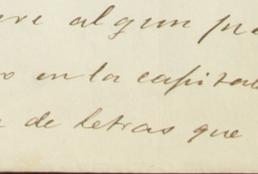 algun
en la capital
de letras que